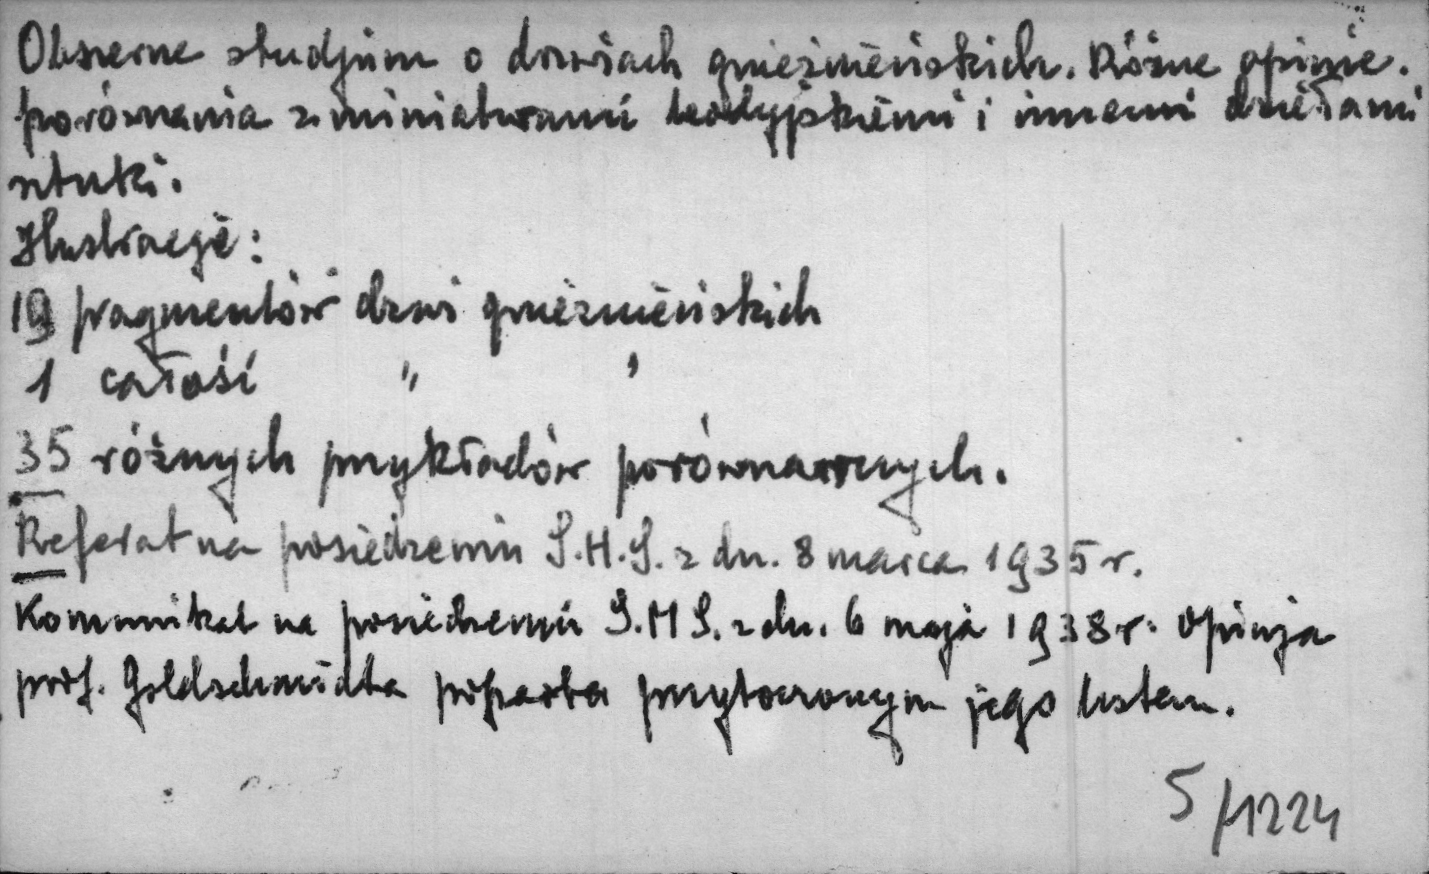 Obszerne studjum o drzwiach gnieźnieńskich. Różne opinie.
porównania z miniaturami leodyjskiemi i innemi dziełami
sztuki.
Ilustracje:
19 fragmentów drzwi gnieźnieńskich
1 całość " "
35 różnych przykładów porównawczych.
Referat na posiedzeniu S.H.S. z dn. 8 marca 1935 r.
Komunikat na posiedzeniu S.H.S. z dn. 6 maja 1938 r. opinja
prof. Goldschmidta poparta przytoczonym jego listem.
5/1224